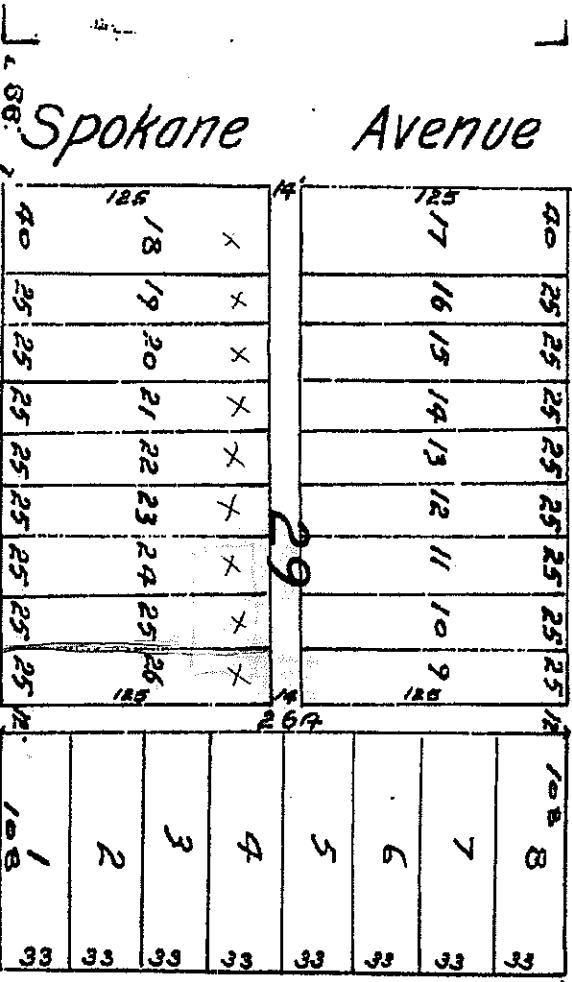 Spokane Avenue
125 14' 125
40 18 x 17 40
25 19 x 16 25
25 20 x 15 25
25 21 x 14 25
25 22 x 13 25
25 23 x 12 25
29
25 24 x 11 25
25 25 x 10 25
25 26 x 9 25
125 14 125
12' 264 12'
108 108
1 2 3 4 5 6 7 8
33 33 33 33 33 33 33 33